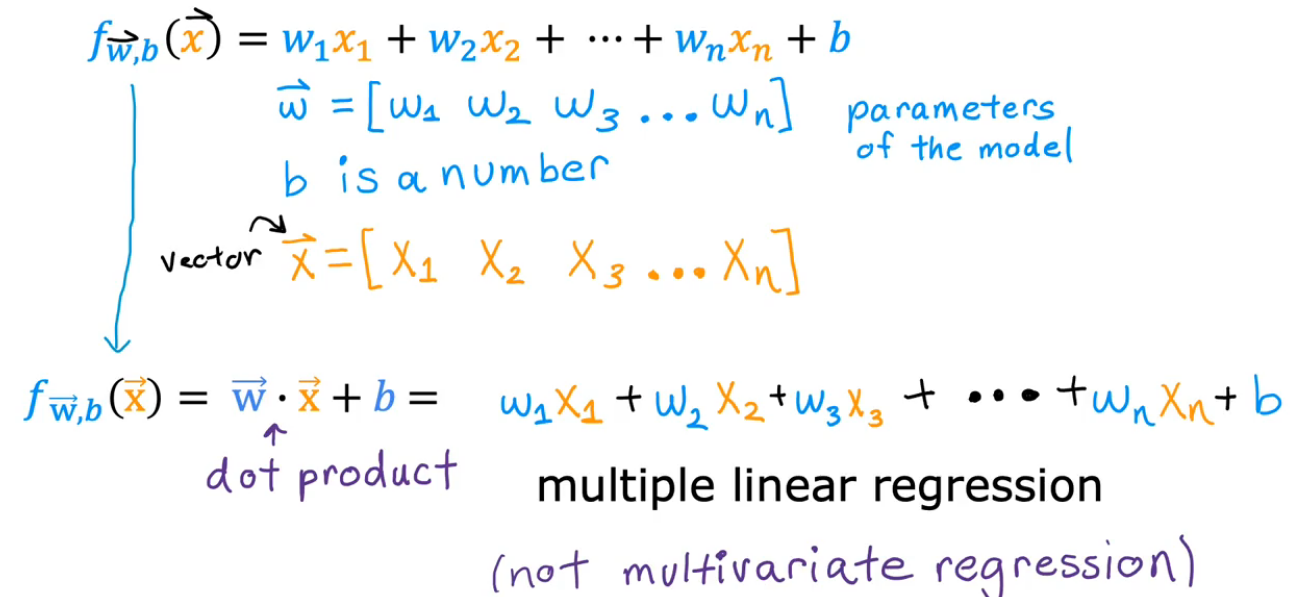 f_{\vec{w},b}(\vec{x}) = w₁x₁ + w₂x₂ + ⋯ + wₙxₙ + b
\vec{w} = [w₁ w₂ w₃ ... wₙ] parameters of the model
b is a number
vector \vec{x} = [x₁ x₂ x₃ ... xₙ]
f_{\vec{w},b}(\vec{x}) = \vec{w} · \vec{x} + b = w₁x₁ + w₂x₂ + w₃x₃ + ⋯ + wₙxₙ + b
dot product
multiple linear regression
(not multivariate regression)